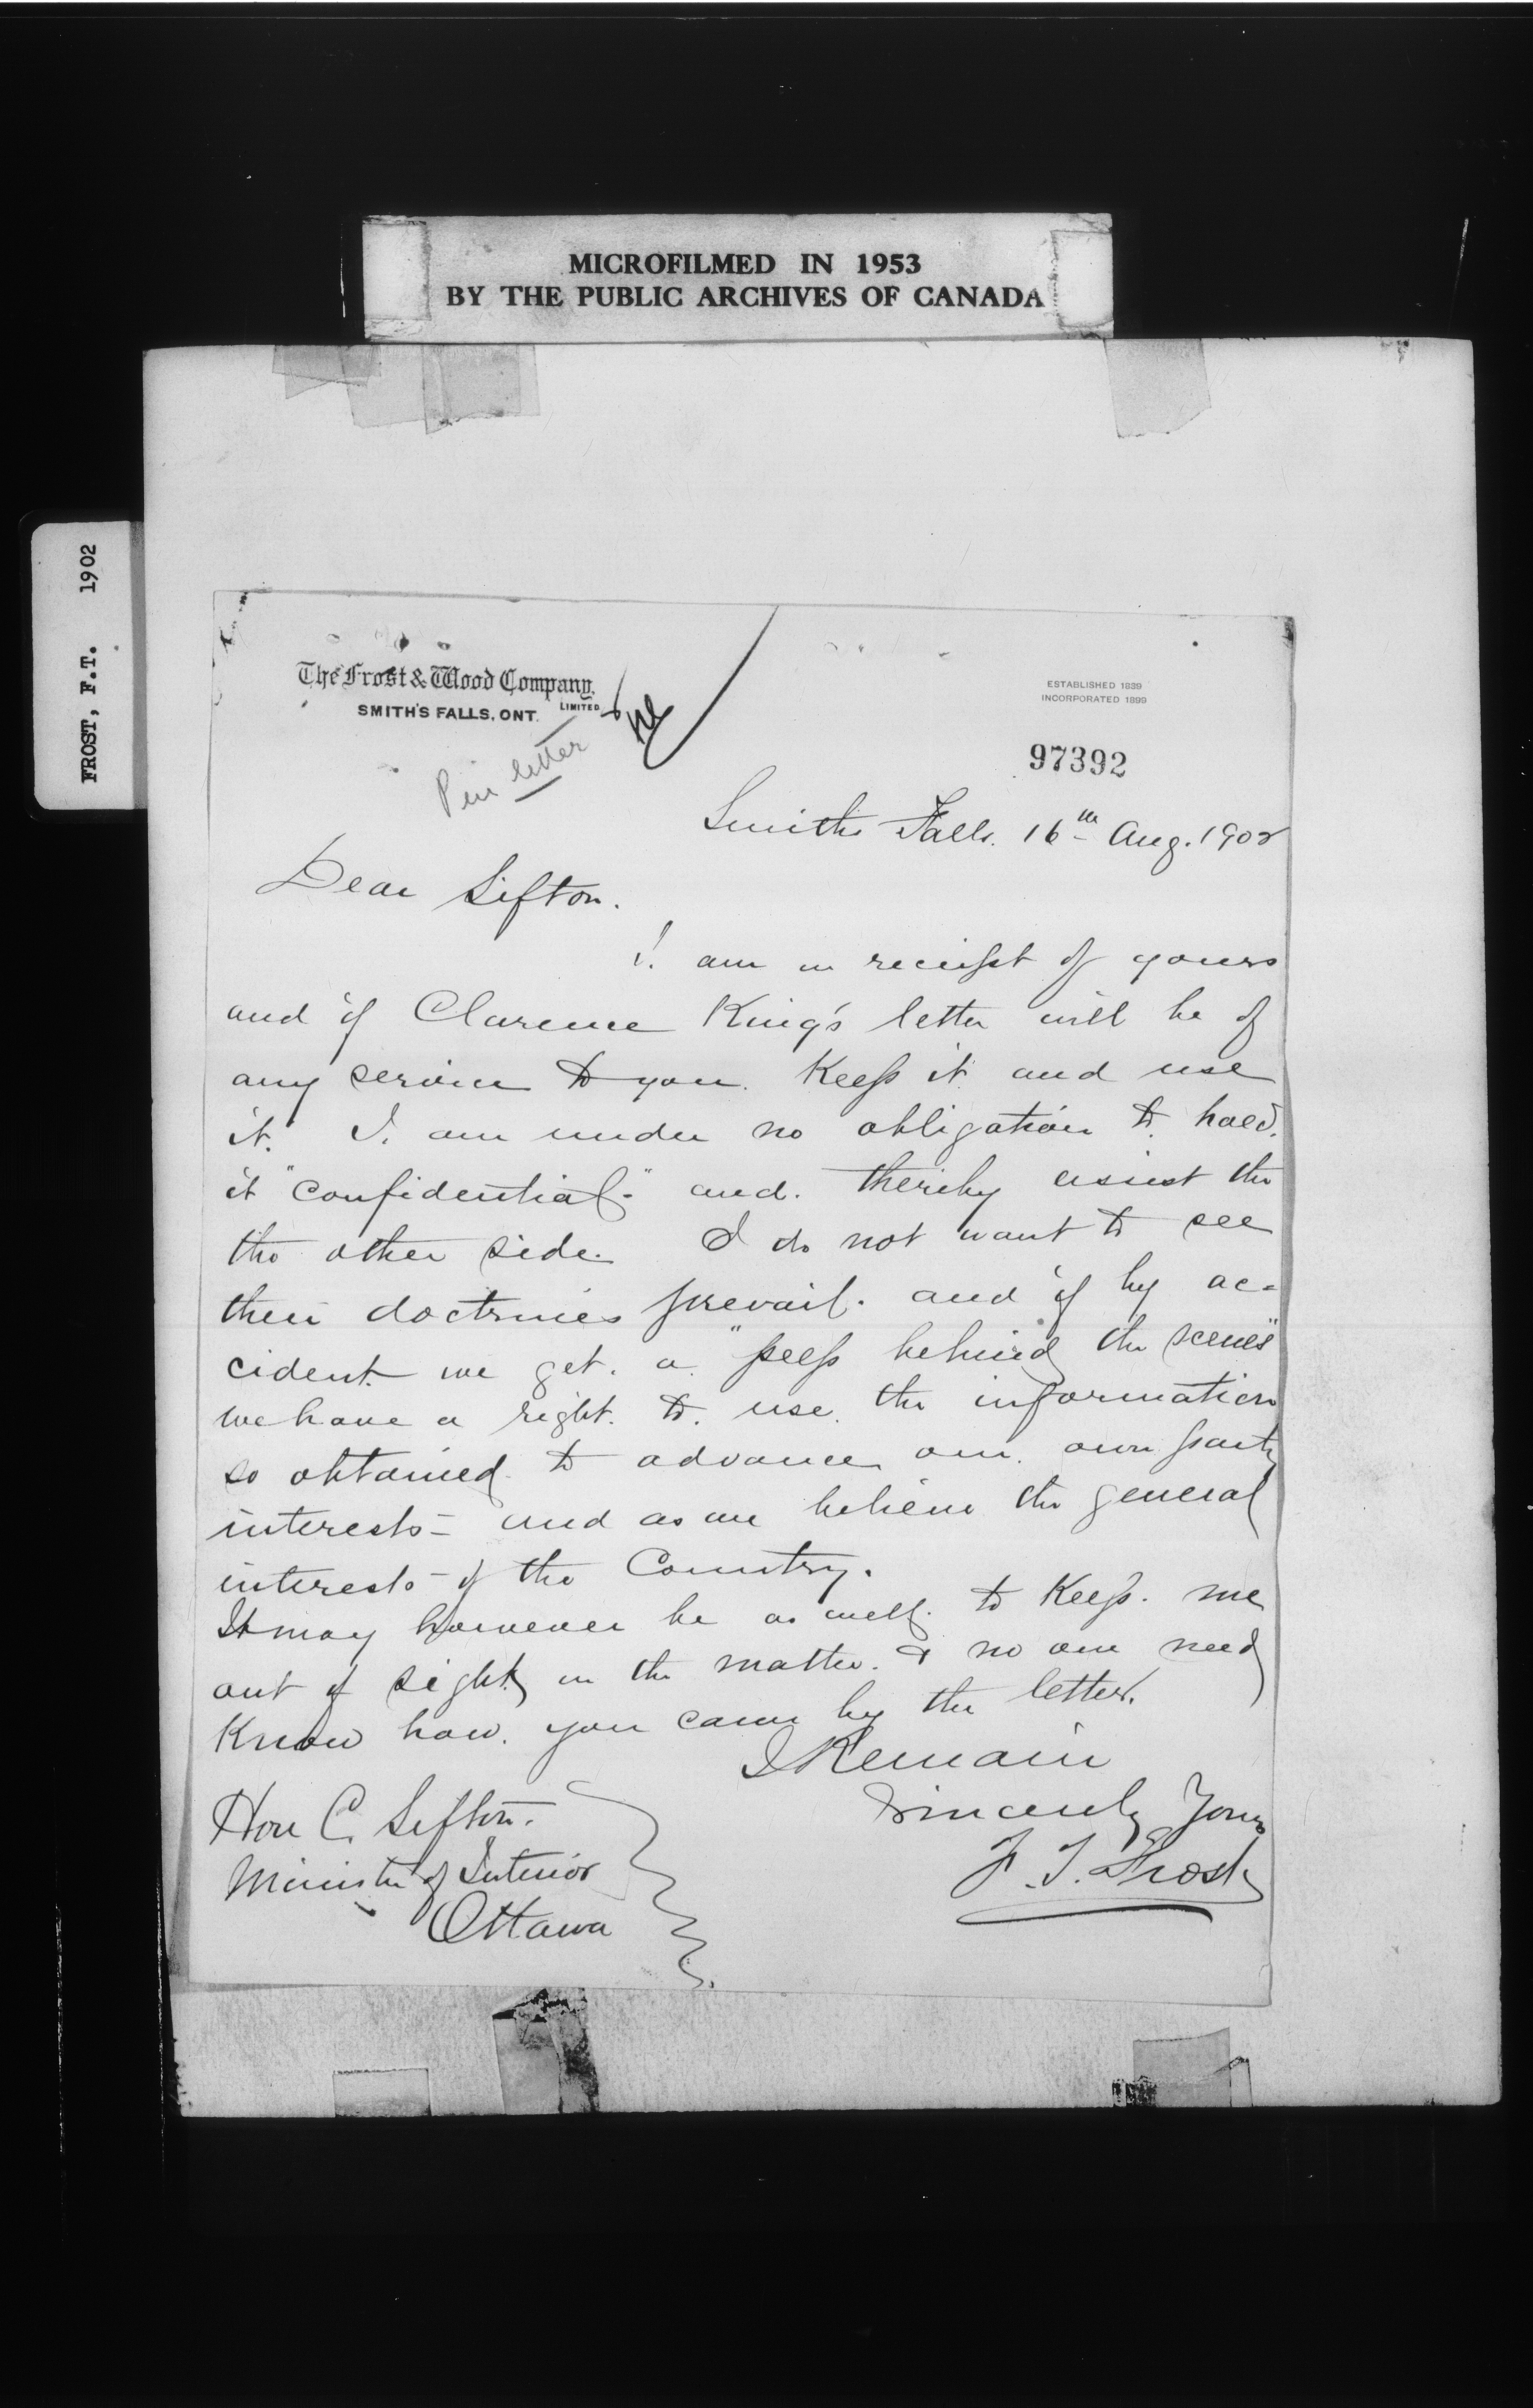 MICROFILMED IN 1953
BY THE PUBLIC ARCHIVES OF CANADA
FROST, F.T. 1902
The Frost & Wood Company,
LIMITED
SMITH'S FALLS, ONT.
ESTABLISHED 1839
INCORPORATED 1899
Pen letter
97392
Smiths Falls. 16th Aug. 1902
Dear Sifton.
I. am in receipt of yours
and if Clarence King's letter will be of
any service to you. Keep it and use
it. I. am under no obligation to hold.
it "confidential." and. thereby assist the
the other side. I do not want to see
their doctrines prevail. and if by ac=
cident we get. a "peep behind the scenes"
we have a right. to. use. the information
so obtained to advance our. own party
interests - and as we believe the general
interests - of the Country.
It may however be as well. to Keep. me
out of sight in the matter. & no one need
Know how. you came by the letter.
I Remain
Sincerely Yours
F. T. Frost
Hon C. Sifton.
Minister of Interior
Ottawa